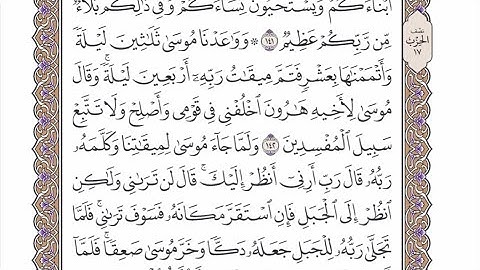 أَبْنَآءَكُمْ وَيَسْتَحْيُونَ نِسَآءَكُمْ وَفِى ذَٰلِكُم بَلَآءٌ
مِّن رَّبِّكُمْ عَظِيمٌ ١٤١ ۞ وَوَٰعَدْنَا مُوسَىٰ ثَلَٰثِينَ لَيْلَةً
وَأَتْمَمْنَٰهَا بِعَشْرٍ فَتَمَّ مِيقَٰتُ رَبِّهِۦٓ أَرْبَعِينَ لَيْلَةً ۚ وَقَالَ
مُوسَىٰ لِأَخِيهِ هَٰرُونَ ٱخْلُفْنِى فِى قَوْمِى وَأَصْلِحْ وَلَا تَتَّبِعْ
سَبِيلَ ٱلْمُفْسِدِينَ ١٤٢ وَلَمَّا جَآءَ مُوسَىٰ لِمِيقَٰتِنَا وَكَلَّمَهُۥ
رَبُّهُۥ قَالَ رَبِّ أَرِنِىٓ أَنظُرْ إِلَيْكَ ۚ قَالَ لَن تَرَىٰنِى وَلَٰكِنِ
ٱنظُرْ إِلَى ٱلْجَبَلِ فَإِنِ ٱسْتَقَرَّ مَكَانَهُۥ فَسَوْفَ تَرَىٰنِى ۚ فَلَمَّا
تَجَلَّىٰ رَبُّهُۥ لِلْجَبَلِ جَعَلَهُۥ دَكًّا وَخَرَّ مُوسَىٰ صَعِقًا ۚ فَلَمَّآ
نصف
الحزب
١٧